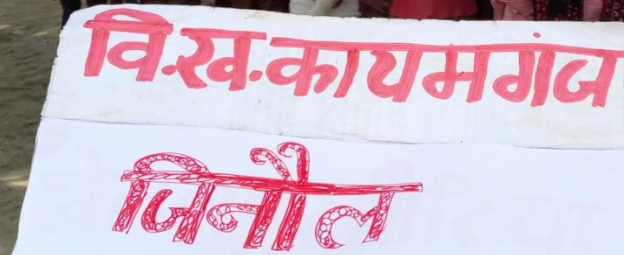 वि.ख.कायमगंज
जिनौल